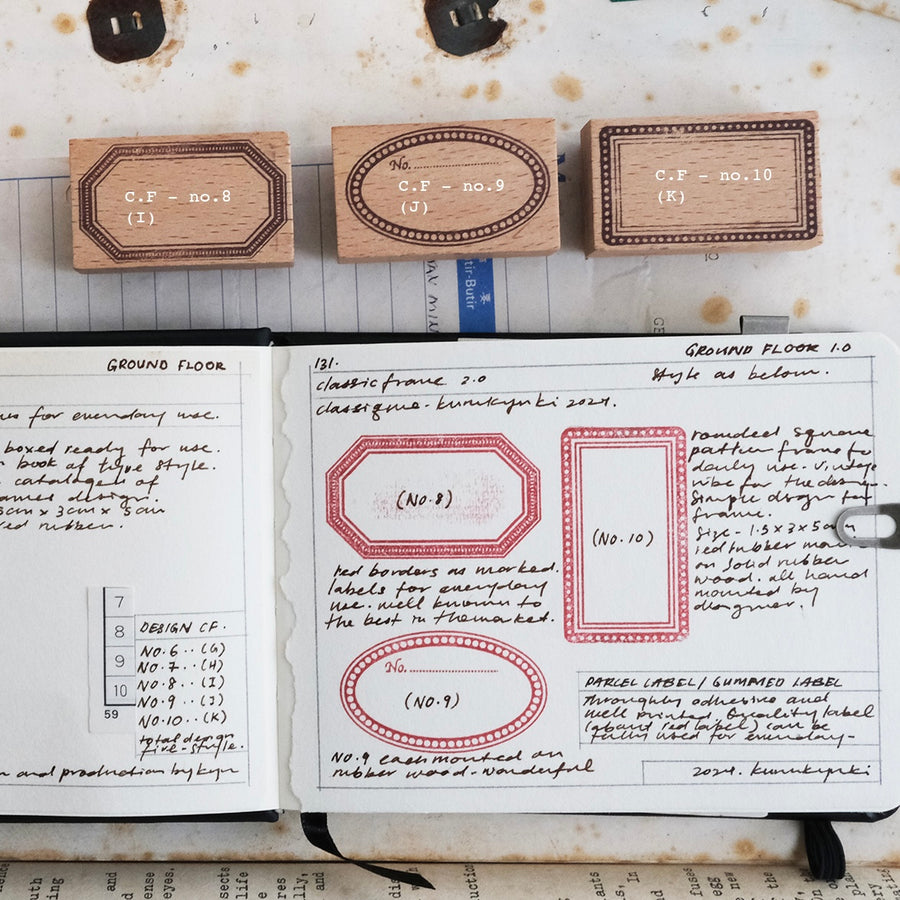 No.
C.F - no.8
(I)
C.F - no.9
(J)
C.F - no.10
(K)
tir-Butir
GROUND FLOOR
for everyday use.
boxed ready for use.
book of type style.
catalogues of
design.
x 3cm x 5cm
red rubber.
7
8
9
10
59
DESIGN CF.
NO.6 .. (G)
NO.7 .. (H)
NO.8 .. (I)
NO.9 .. (J)
NO.10 .. (K)
total design
five-style.
and production by
131.
GROUND FLOOR 1.0
classic frame 2.0
style as below.
2024.
(NO.8)
red borders as marked.
labels for everyday
use. well known to
the best in the market.
No.
(NO.9)
NO.9 each mounted on
rubber wood. wonderful
(NO.10)
rounded square
pattern frame for
daily use. vintage
vibe for the design.
simple design for
frame.
size - 1.5 x 3 x 5cm
red rubber
on solid rubber
wood. all hand
mounted by
designer.
PARCEL LABEL / GUMMED LABEL
throughly adhesive and
well printed. Quality label
red label) can be
fully used for everyday-
2024. kurukynki